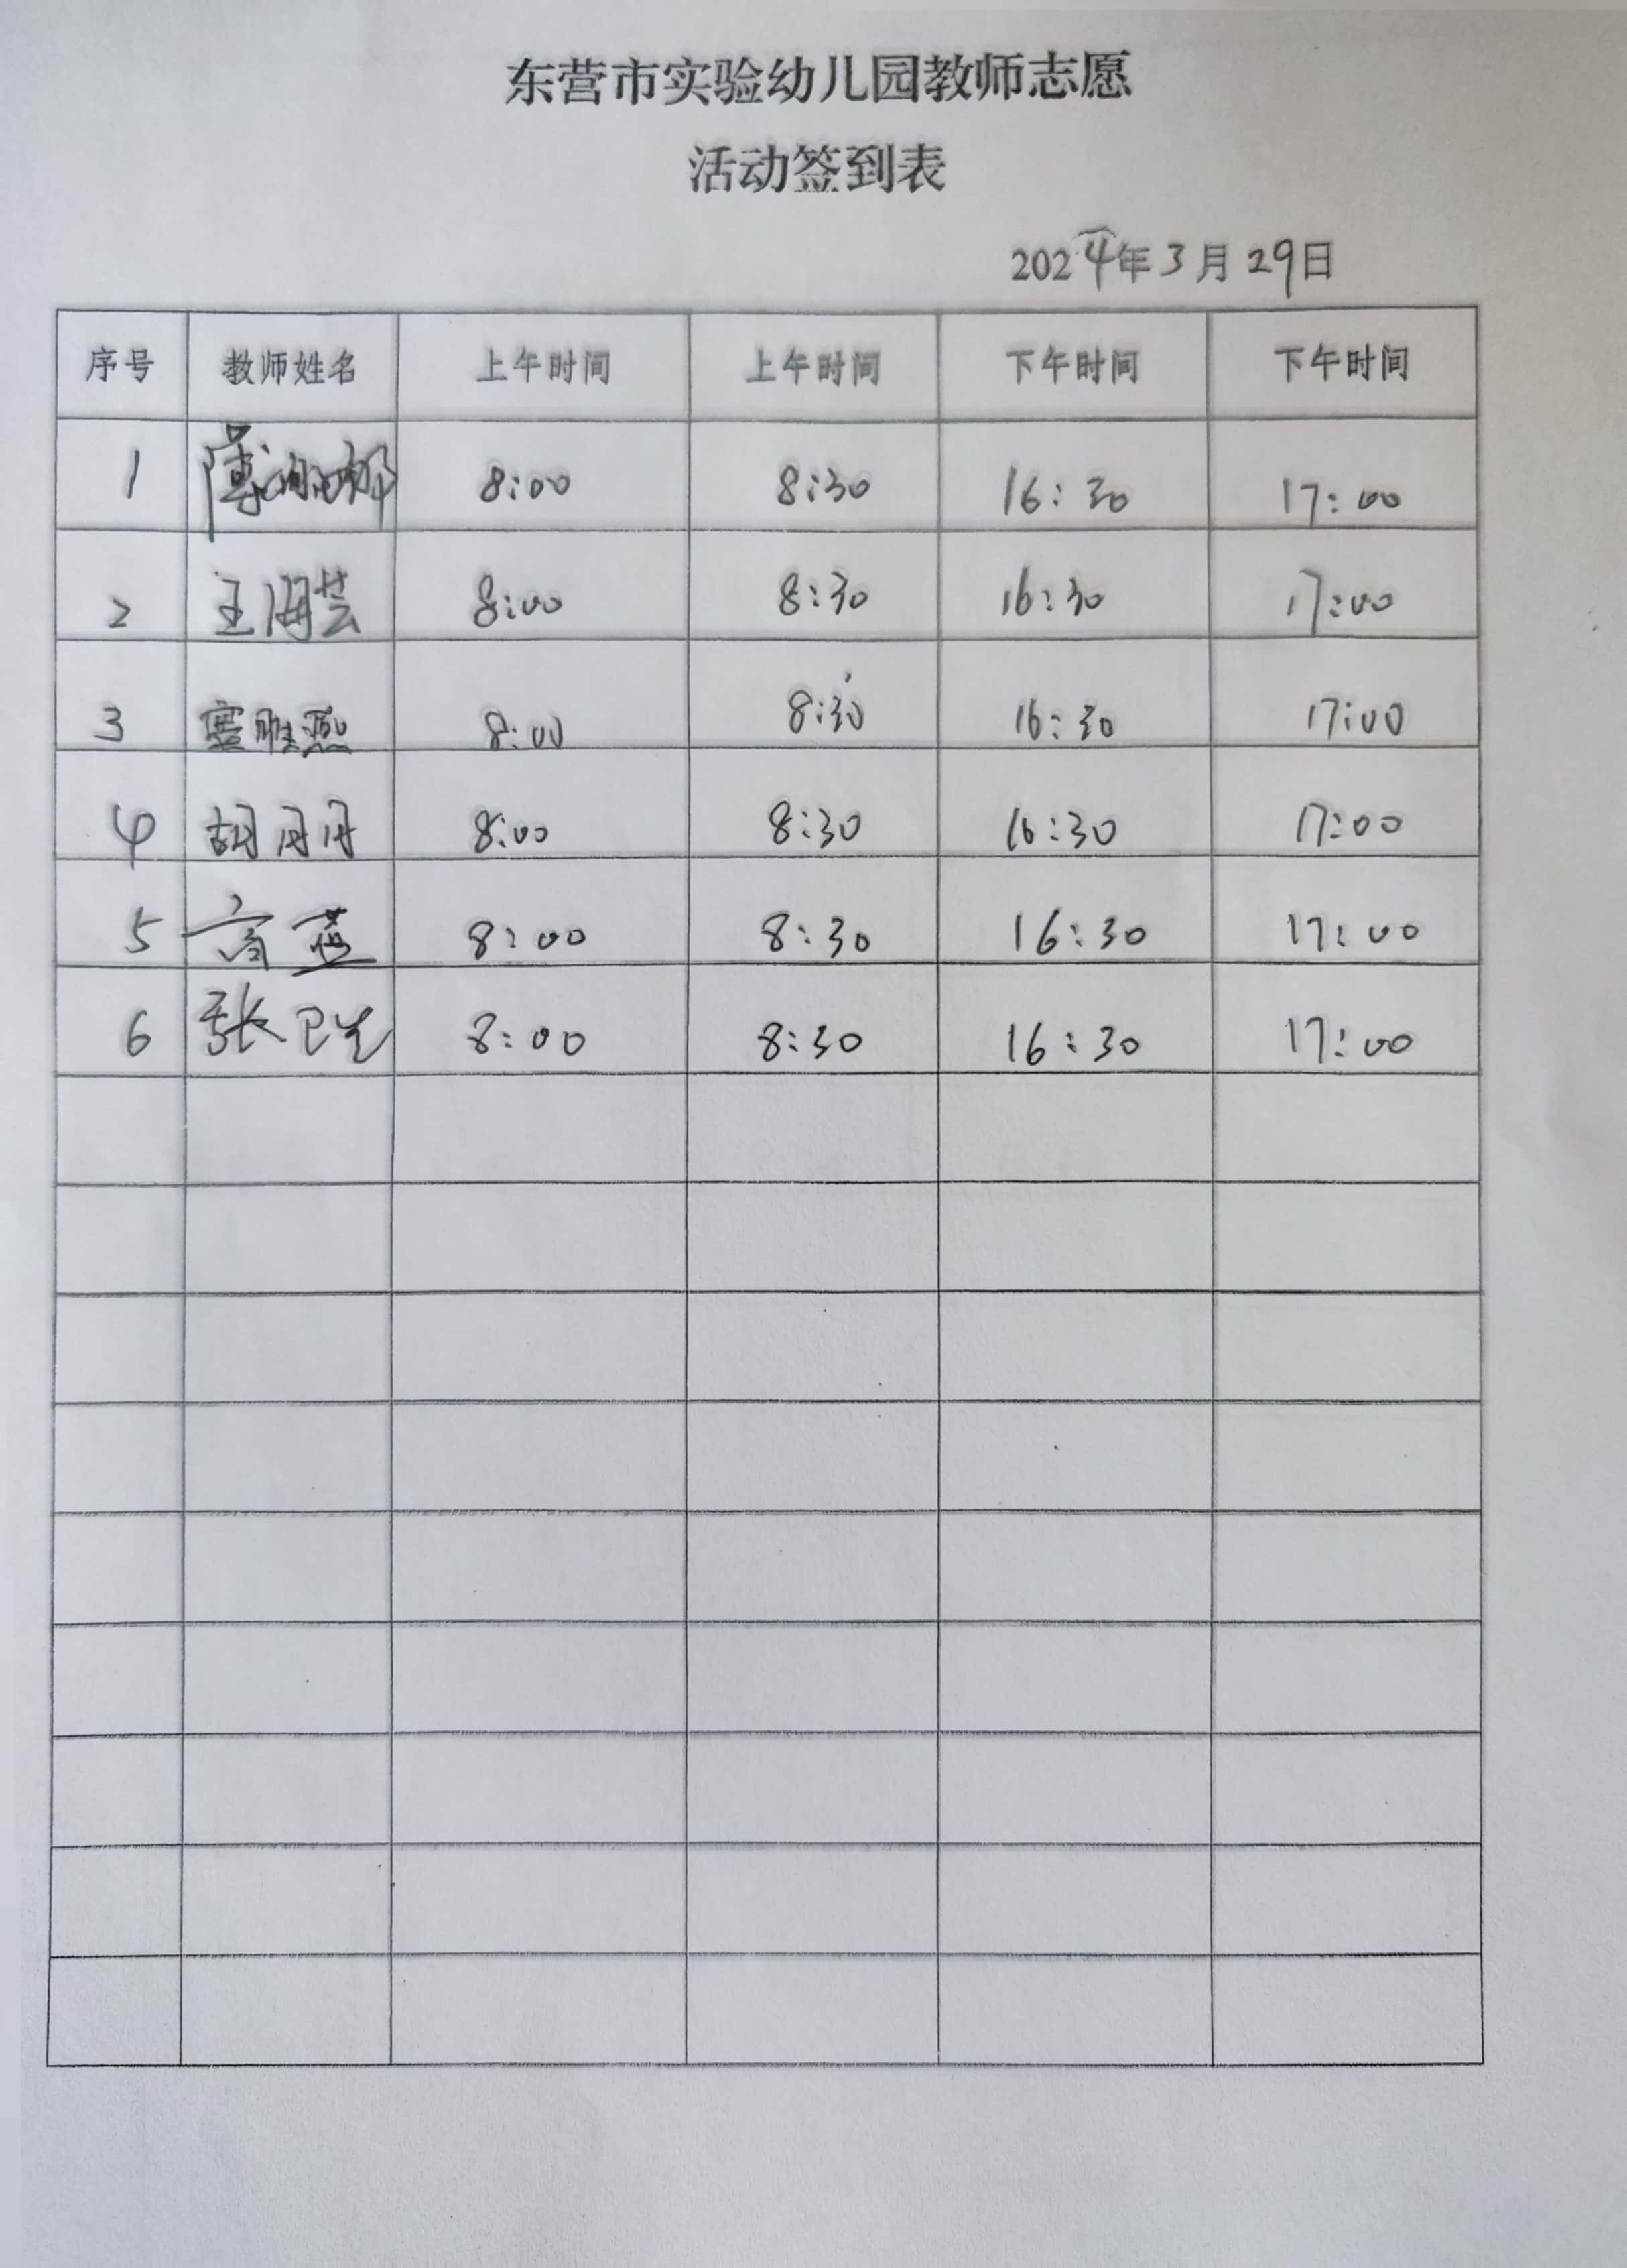 东营市实验幼儿园教师志愿
活动签到表
2024年3月29日
序号 教师姓名 上午时间 上午时间 下午时间 下午时间
1 8:00 8:30 16:30 17:00
2 王海芸 8:00 8:30 16:30 17:00
3 8:00 8:30 16:30 17:00
4 胡丹丹 8:00 8:30 16:30 17:00
5 高 8:00 8:30 16:30 17:00
6 张卫生 8:00 8:30 16:30 17:00